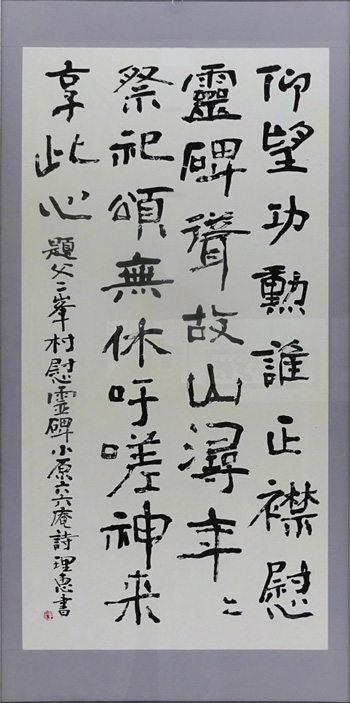 仰望功勲誰正襟慰
靈碑聳故山潯年々
祭祀頌無休吁嗟神来
享此心 題父二峯村慰霊碑小原六六庵詩理恵書